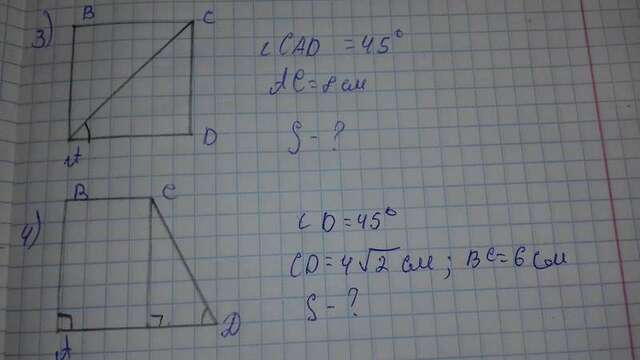 3)
B C
∠CAD = 45°
AC = 8 см
S - ?
A D
4)
B C
∠D = 45°
CD = 4√2 см ; BC = 6 см
S - ?
A D